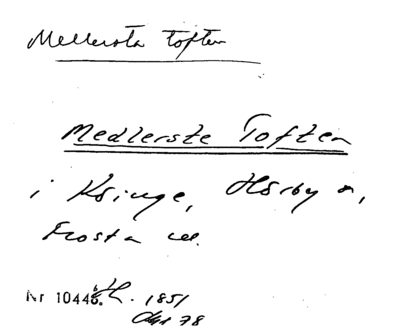 Mellersta toften
Medlerste Toften
i Ksinge, Hörby s.,
Frosta
Nr 10446. 1851
78